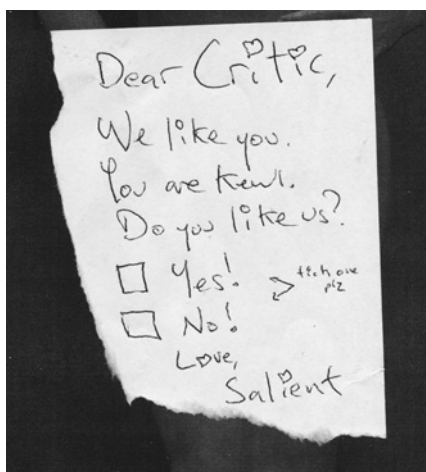 Dear Critic,
We like you.
You are Kewl.
Do you like us?
Yes!
tick one
plz
No!
Love,
Salient